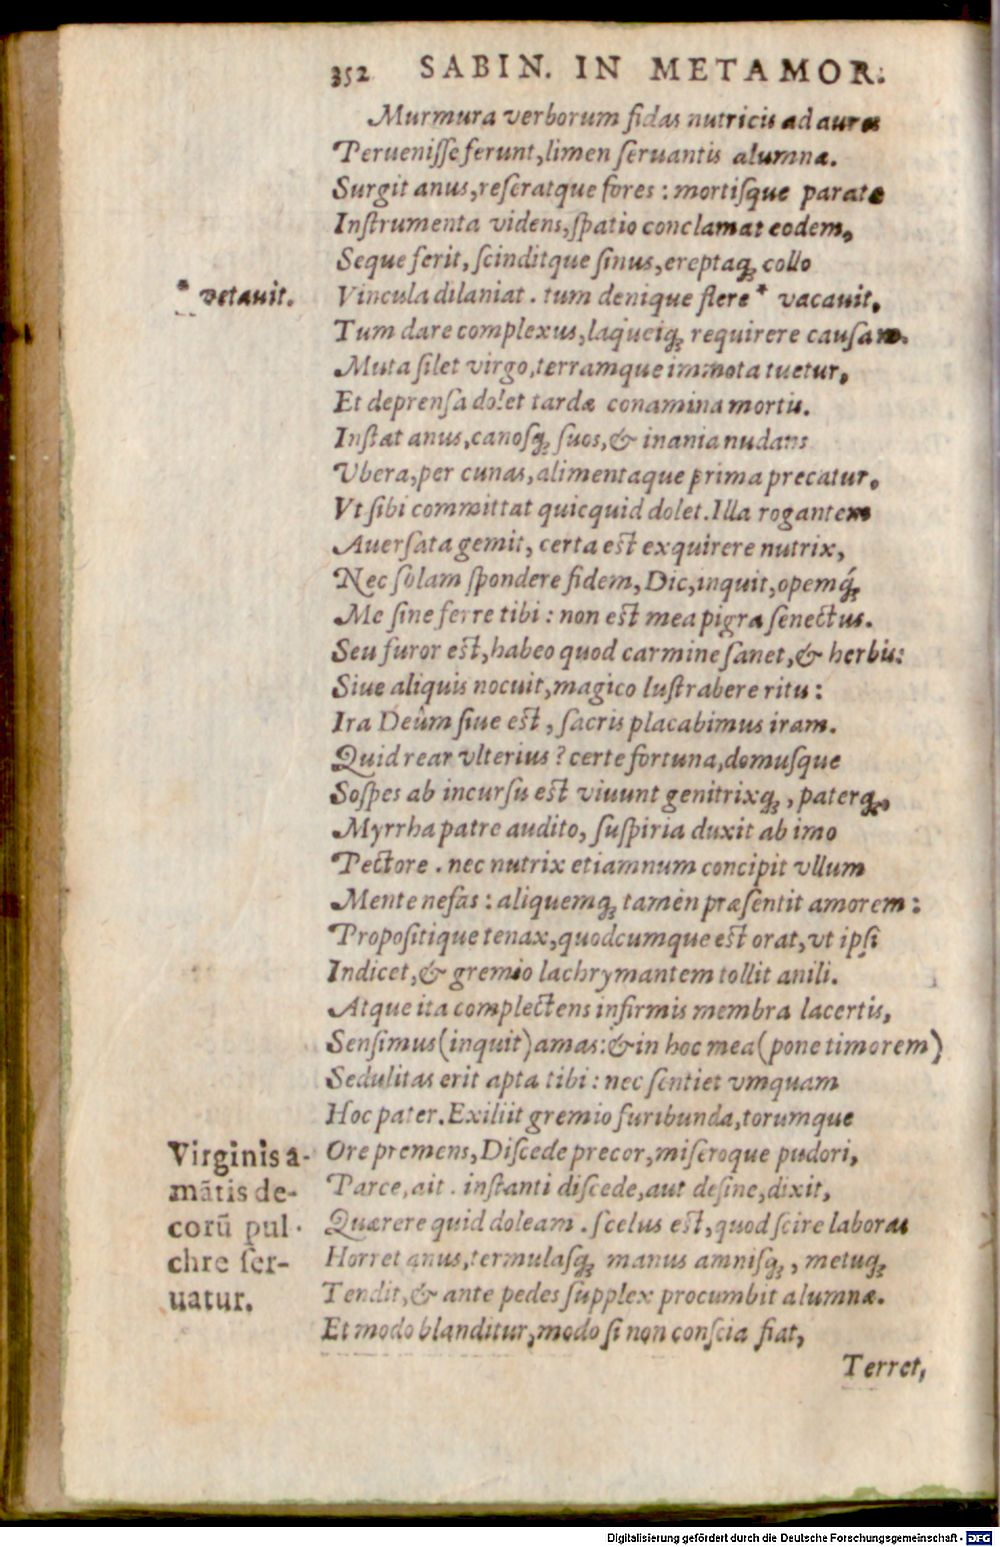 352 SABIN. IN METAMOR.
Murmura verborum fidas nutricis ad aures
Peruenisse ferunt, limen seruantis alumnæ.
Surgit anus, reseratque fores: mortisque paratæ
Instrumenta videns, spatio conclamat eodem,
Seque ferit, scinditque sinus, ereptaq; collo
* vetauit.
Vincula dilaniat. tum denique flere * vacauit,
Tum dare complexus, laqueiq; requirere causam.
Muta silet virgo, terramque immota tuetur,
Et deprensa dolet tardæ conamina mortis.
Instat anus, canosq; suos, & inania nudans
Vbera, per cunas, alimentaque prima precatur,
Vt sibi committat quicquid dolet. Illa rogantem
Auersata gemit, certa est exquirere nutrix,
Nec solam spondere fidem, Dic, inquit, opemq́;
Me sine ferre tibi: non est mea pigra senectus.
Seu furor est, habeo quod carmine sanet, & herbis:
Siue aliquis nocuit, magico lustrabere ritu:
Ira Deûm siue est, sacris placabimus iram.
Quid rear vlterius? certe fortuna, domusque
Sospes ab incursu est viuunt genitrixq;, paterq;,
Myrrha patre audito, suspiria duxit ab imo
Pectore. nec nutrix etiamnum concipit vllum
Mente nefas: aliquemq; tamen præsentit amorem:
Propositique tenax, quodcumque est orat, vt ipsi
Indicet, & gremio lachrymantem tollit anili.
Atque ita complectens infirmis membra lacertis,
Sensimus (inquit) amas: & in hoc mea (pone timorem)
Sedulitas erit apta tibi: nec sentiet vmquam
Hoc pater. Exiliit gremio furibunda, torumque
Virginis a-
mãtis de-
corũ pul-
chre ser-
uatur.
Ore premens, Discede precor, miseroque pudori,
Parce, ait. instanti discede, aut desine, dixit,
Quærere quid doleam. scelus est, quod scire laboras
Horret anus, termulasq; manus amnisq;, metuq;
Tendit, & ante pedes supplex procumbit alumnæ.
Et modo blanditur, modo si non conscia fiat,
Terret,
Digitalisierung gefördert durch die Deutsche Forschungsgemeinschaft - DFG